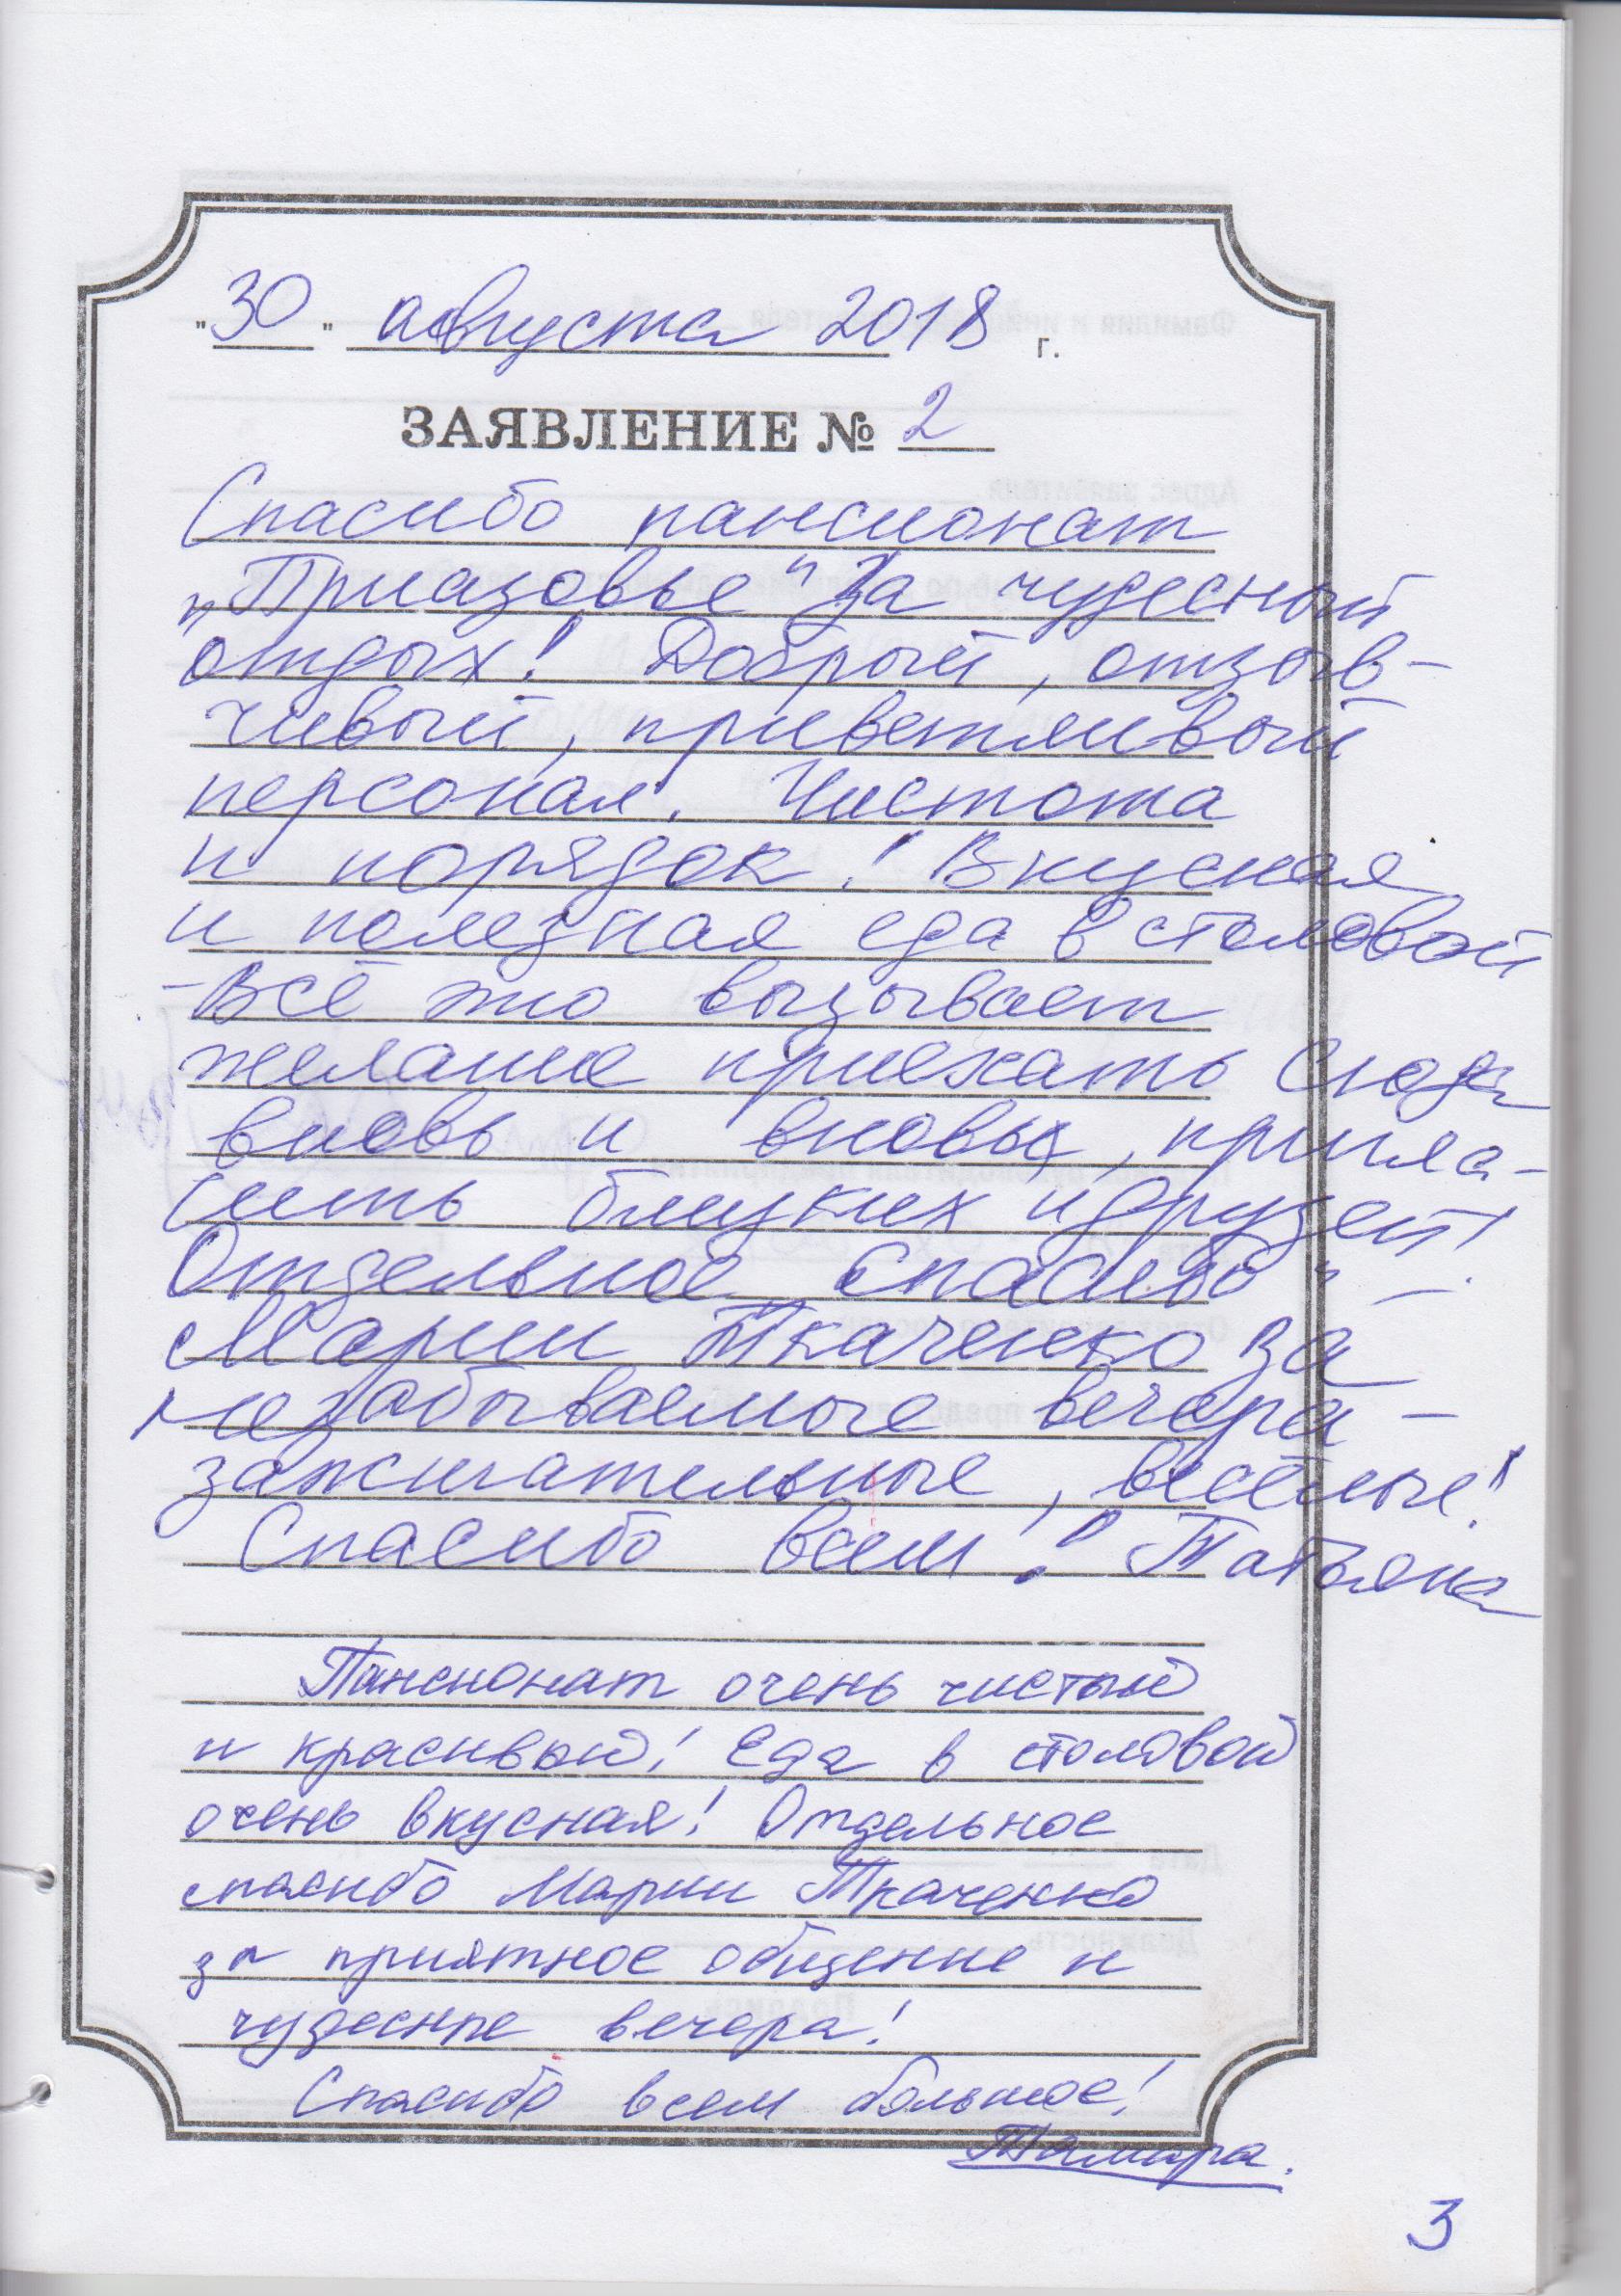 "30" августа 2018 г.
ЗАЯВЛЕНИЕ № 2
Спасибо пансионат
„Приазовье" за чудесный
отдых! Добрый, отзыв-
чивый, приветливый
персонал. Чистота
и порядок! Вкусная
и полезная еда в столовой
- Всё это вызывает
желание приехать сюда
вновь и вновь, пригла-
сить близких и друзей!
Отдельное спасибо
Марии Ткаченко за
незабываемые вечера -
зажигательные, весёлые!
Спасибо всем! Татьяна
Пансионат очень чистый
и красивый! Еда в столовой
очень вкусная! Отдельное
спасибо Марии Ткаченко
за приятное общение и
чудесные вечера!
Спасибо всем большое!
Тамара.
3